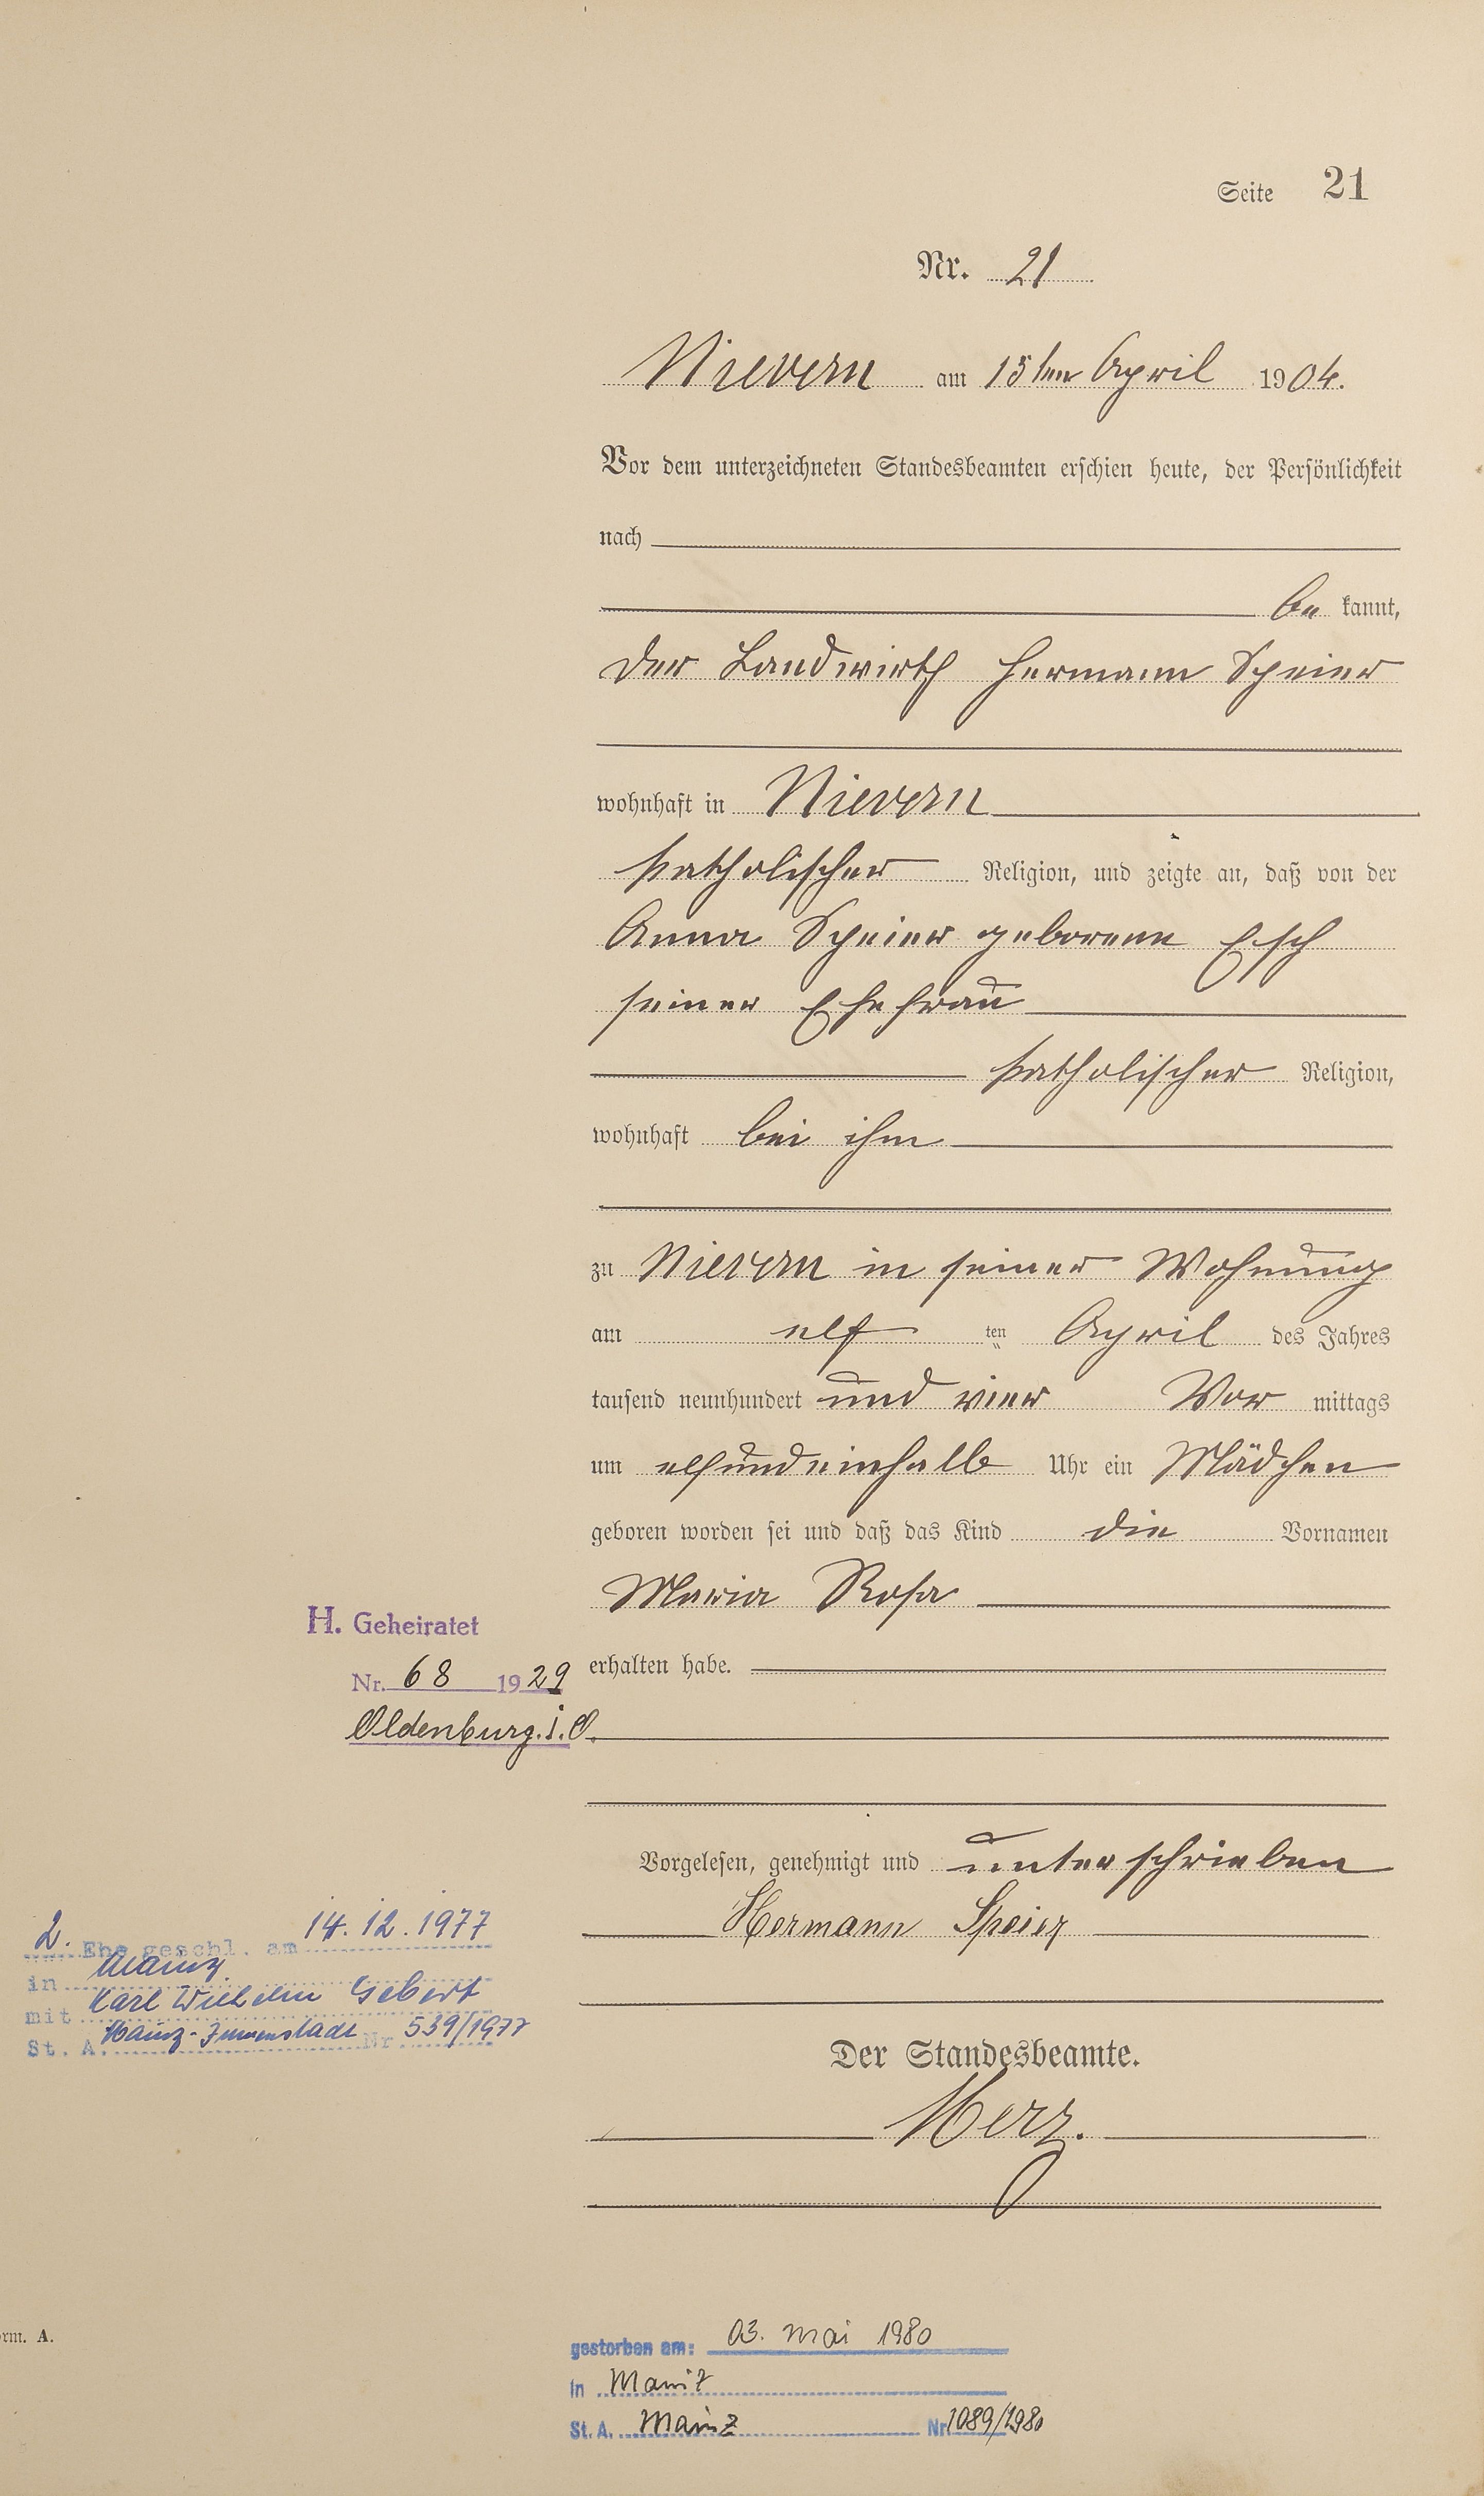 Seite 21
Nr. 21
Nievern am 15ten April 1904.
Vor dem unterzeichneten Standesbeamten erschien heute, der Persönlichkeit
nach
be kannt,
der Landwirth Hermann Speier
wohnhaft in Nievern
katholischer Religion, und zeigte an, daß von der
Anna Speier geborene Esch
seiner Ehefrau
katholischer Religion,
wohnhaft bei ihm
zu Nievern in seiner Wohnung
am elf ten April des Jahres
tausend neunhundert und vier Vor mittags
um elfundeinhalb Uhr ein Mädchen
geboren worden sei und daß das Kind die Vornamen
Maria Rosa
erhalten habe.
H. Geheiratet
Nr. 68 1929
Oldenburg. i. O.
Vorgelesen, genehmigt und unterschrieben
Hermann Speier
2. Ehe geschl. am 14.12.1977
in Mainz
mit Karl Wilhelm Gebert
St. A. Mainz-Innenstadt Nr. 539/1977
Der Standesbeamte.
Herz.
orm. A.
gestorben am: 03. Mai 1980
in Mainz
St. A. Mainz Nr. 1089/1980